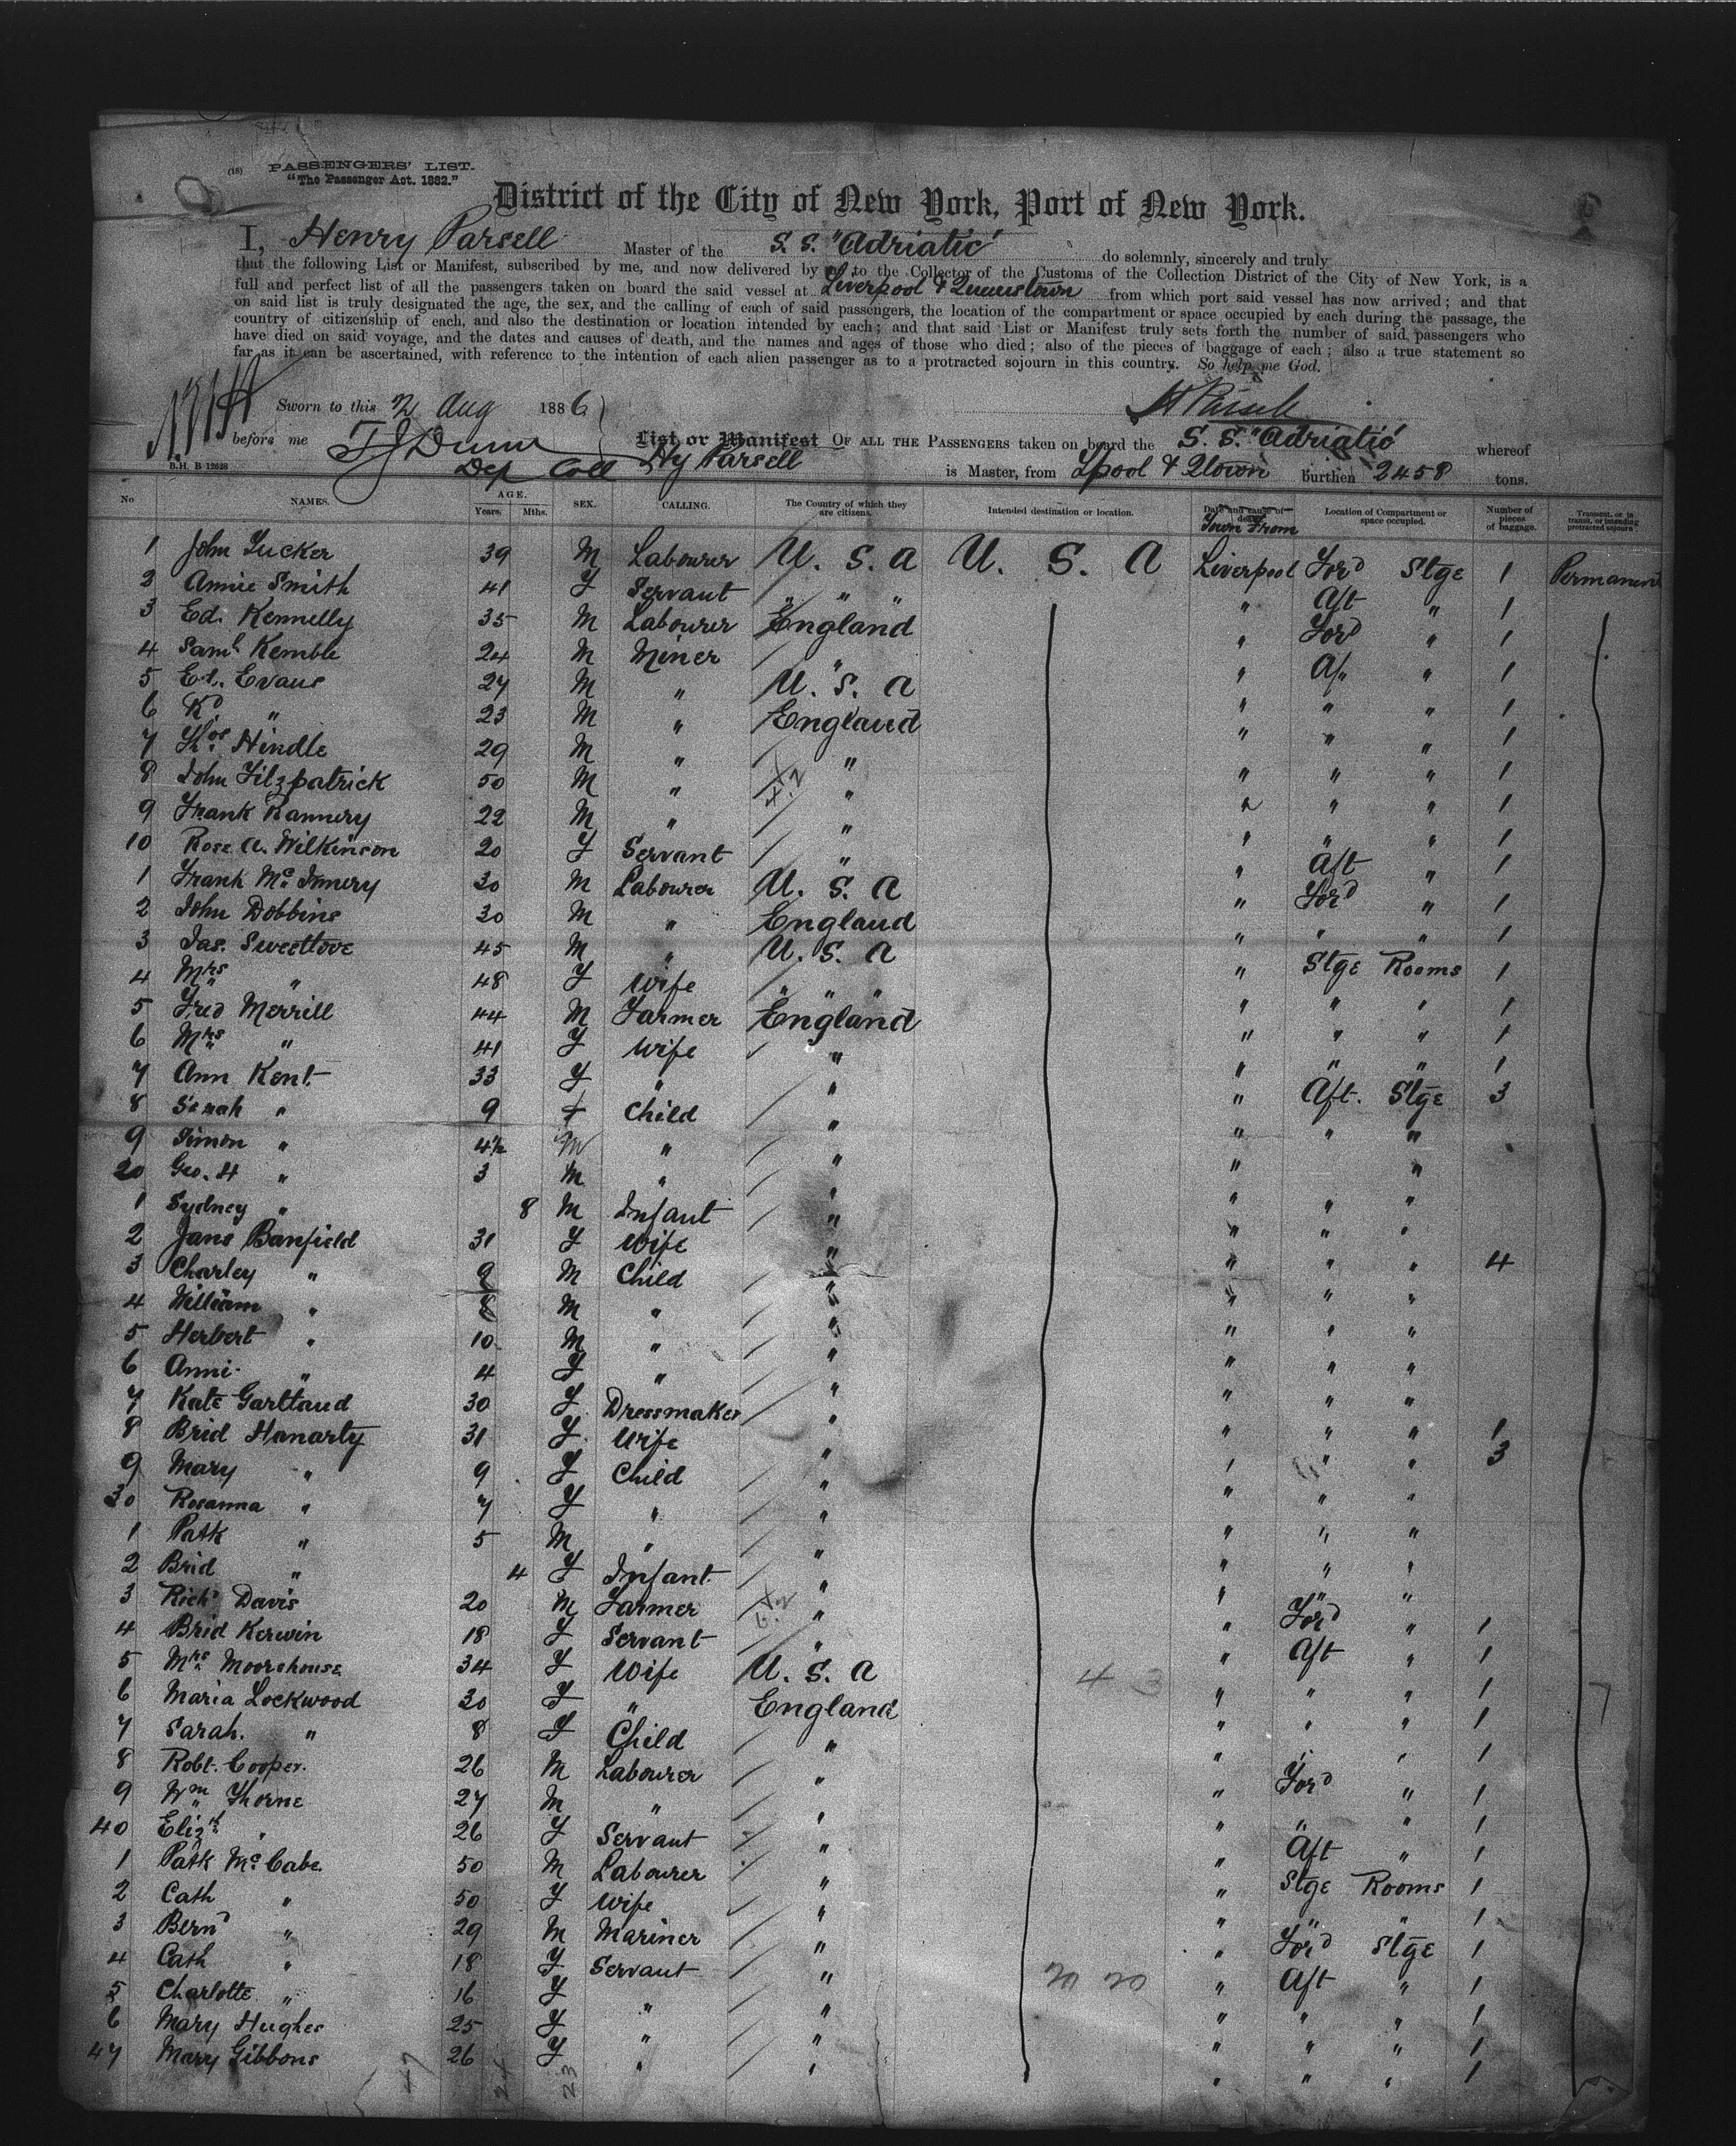 (18) PASSENGERS' LIST.
"The Passenger Act. 1882."
District of the City of New York, Port of New York.
I, Henry Parsell Master of the S. S. "Adriatic" do solemnly, sincerely and truly
that the following List or Manifest, subscribed by me, and now delivered by me to the Collector of the Customs of the Collection District of the City of New York, is a
full and perfect list of all the passengers taken on board the said vessel at Liverpool & Queenstown from which port said vessel has now arrived; and that
on said list is truly designated the age, the sex, and the calling of each of said passengers, the location of the compartment or space occupied by each during the passage, the
country of citizenship of each, and also the destination or location intended by each; and that said List or Manifest truly sets forth the number of said passengers who
have died on said voyage, and the dates and causes of death, and the names and ages of those who died; also of the pieces of baggage of each; also a true statement so
far as it can be ascertained, with reference to the intention of each alien passenger as to a protracted sojourn in this country. So help me God.
Sworn to this 2 Aug 1886 H Parsell
before me T J Dunn List or Manifest OF ALL THE PASSENGERS taken on board the S. S. "Adriatic" whereof
B.H. B 12628 Dep Coll Hy Parsell is Master, from Lpool & Qtown burthen 2458 tons.
No NAMES. AGE. Years. Mths. SEX. CALLING. The Country of which they are citizens. Intended destination or location. Date and cause of death. Town From Location of Compartment or space occupied. Number of pieces of baggage. Transient, or in transit, or intending protracted sojourn.
1 John Tucker 39 M Labourer U. S. A U. S. A Liverpool Ford Stge 1 Permanent
2 Annie Smith 41 F Servant " " " " Aft " 1
3 Ed. Kennelly 35 M Labourer England " Ford " 1
4 Saml Kemble 24 M Miner " " Aft " 1
5 Ed. Evans 27 M " U. S. A " " " 1
6 Rd " 23 M " England " " " 1
7 Thos Hindle 29 M " " " " " 1
8 John Fitzpatrick 50 M " " " " " 1
9 Frank Rannery 22 M " " " " " 1
10 Rose A. Wilkinson 20 F Servant " " Aft " 1
1 Frank Mc Innery 30 M Labourer U. S. A " Ford " 1
2 John Dobbins 30 M " England " " " 1
3 Jas. Sweetlove 45 M " U. S. A " Stge Rooms 1
4 Mrs " 48 F Wife " " " " " " 1
5 Fred Merrill 44 M Farmer England " " " 1
6 Mrs " 41 F Wife " " " " 1
7 Ann Kent 33 F " " " Aft. Stge 3
8 Sarah " 9 f Child " " " "
9 Simon " 4½ M " " " "
20 Geo. H " 3 M " " " " "
1 Sydney " 8 M Infant " " " "
2 Jane Banfield 31 F Wife " " " " 4
3 Charley " 9 M Child " " " "
4 William " 8 M " " " " "
5 Herbert " 10 M " " " " "
6 Anni " 4 F " " " " "
7 Kate Gartland 30 F Dressmaker " " " " 1
8 Brid Hanarty 31 F Wife " " " " 3
9 Mary " 9 F Child " " " "
30 Rosanna " 7 F " " " " "
1 Patk " 5 M " " " " "
2 Brid " 4 F Infant " " " "
3 Richd Davis 20 M Farmer " " Ford " 1
4 Brid Kerwin 18 F Servant " " Aft " 1
5 Mrs Moorehouse 34 F Wife U. S. A 43 " " " 1
6 Maria Lockwood 30 F " England " " " 1
7 Sarah. " 8 F Child " " " " 1
8 Robt. Cooper. 26 M Labourer " " Ford " 1
9 Wm Thorne 27 M " " " " " 1
40 Elizth " 26 F Servant " " Aft " 1
1 Patk Mc Cabe. 50 M Labourer " " Stge Rooms 1
2 Cath " 50 F Wife " " " " 1
3 Bernd " 29 M Mariner " " Ford Stge 1
4 Cath " 18 F Servant " 20 20 " Aft " 1
5 Charlotte " 16 F " " " " " 1
6 Mary Hughes 25 F " " " " " 1
47 Mary Gibbons 26 F " " " " " 1
47 24 23